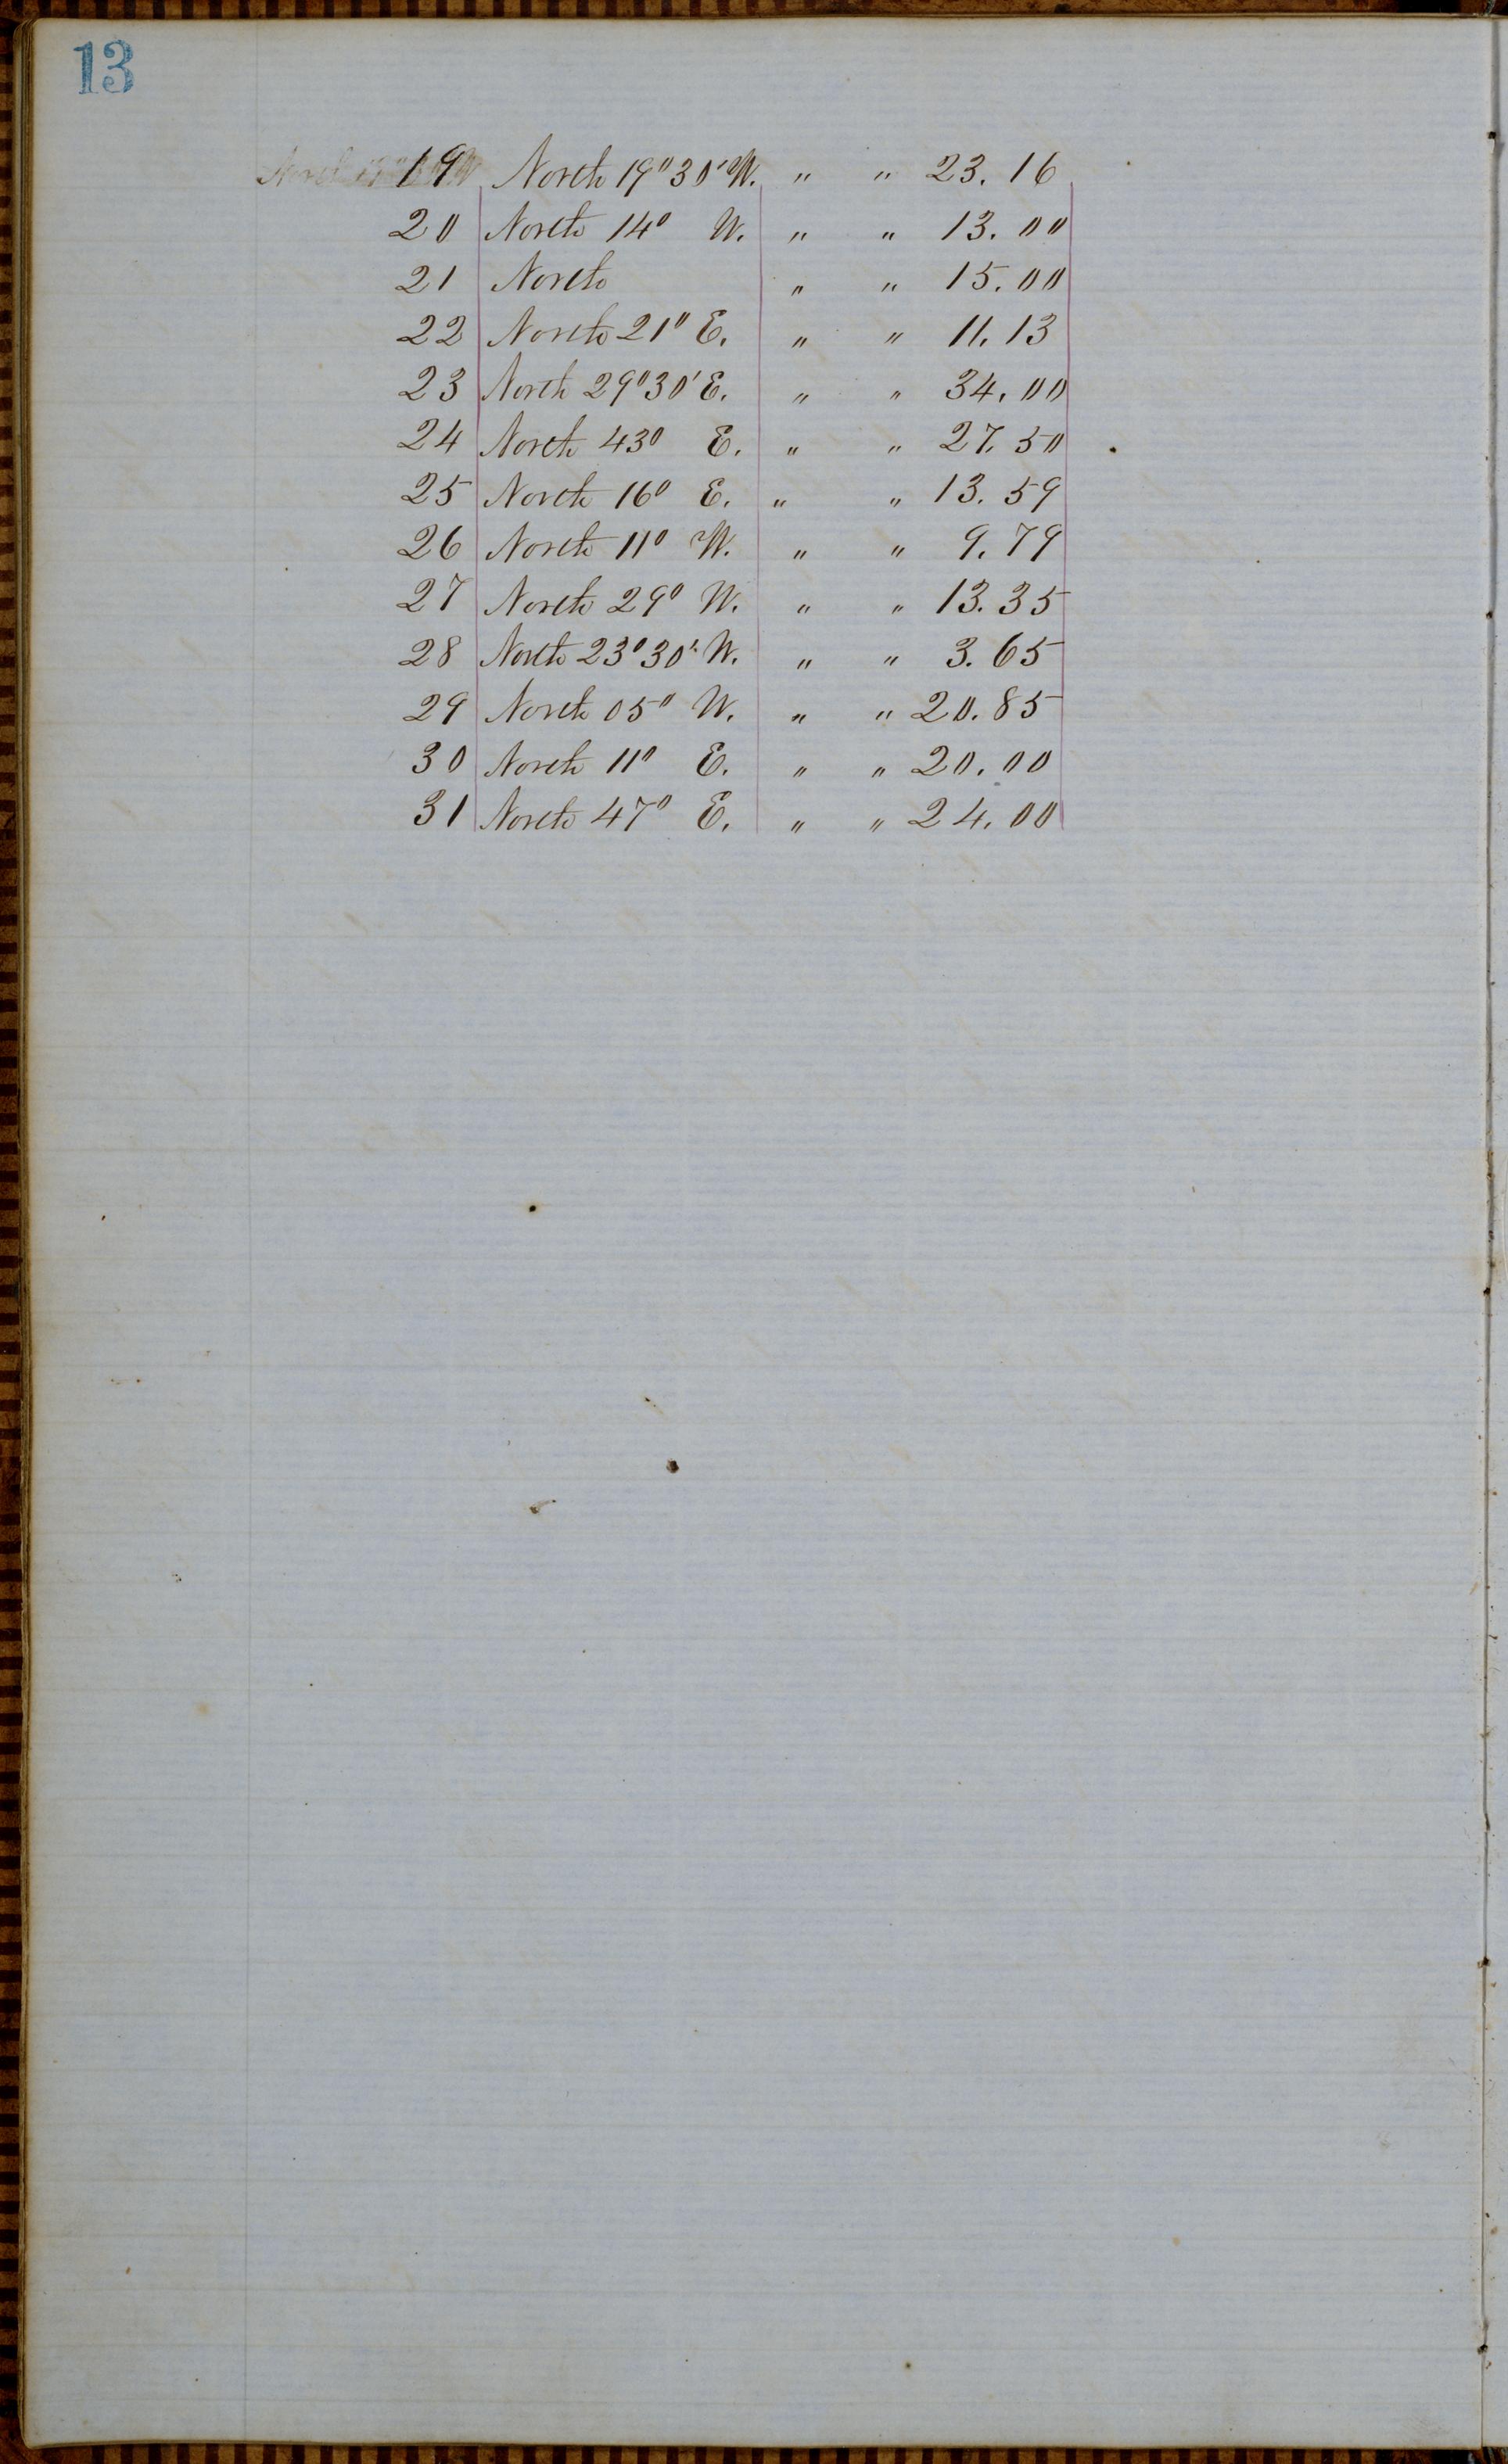 13
19 North 19° 30' W. " " 23.16
20 North 14° W. " " 13.00
21 North " " 15.00
22 North 21° E. " " 11.13
23 North 29° 30' E. " " 34.00
24 North 43° E. " " 27.50
25 North 16° E. " " 13.59
26 North 11° W. " " 9.79
27 North 29° W. " " 13.35
28 North 23° 30' W. " " 3.65
29 North 05° W. " " 20.85
30 North 11° E. " " 20.00
31 North 47° E. " " 24.00